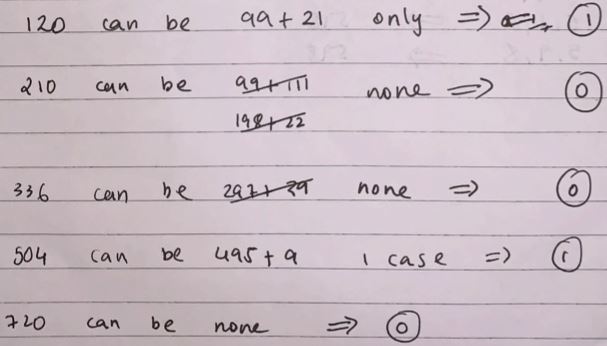 120 can be 99 + 21 only ⇒ 1
210 can be 99 + 111 none ⇒ 0
198 + 22
336 can be 297 + 39 none ⇒ 0
504 can be 495 + 9 1 case ⇒ 1
720 can be none ⇒ 0